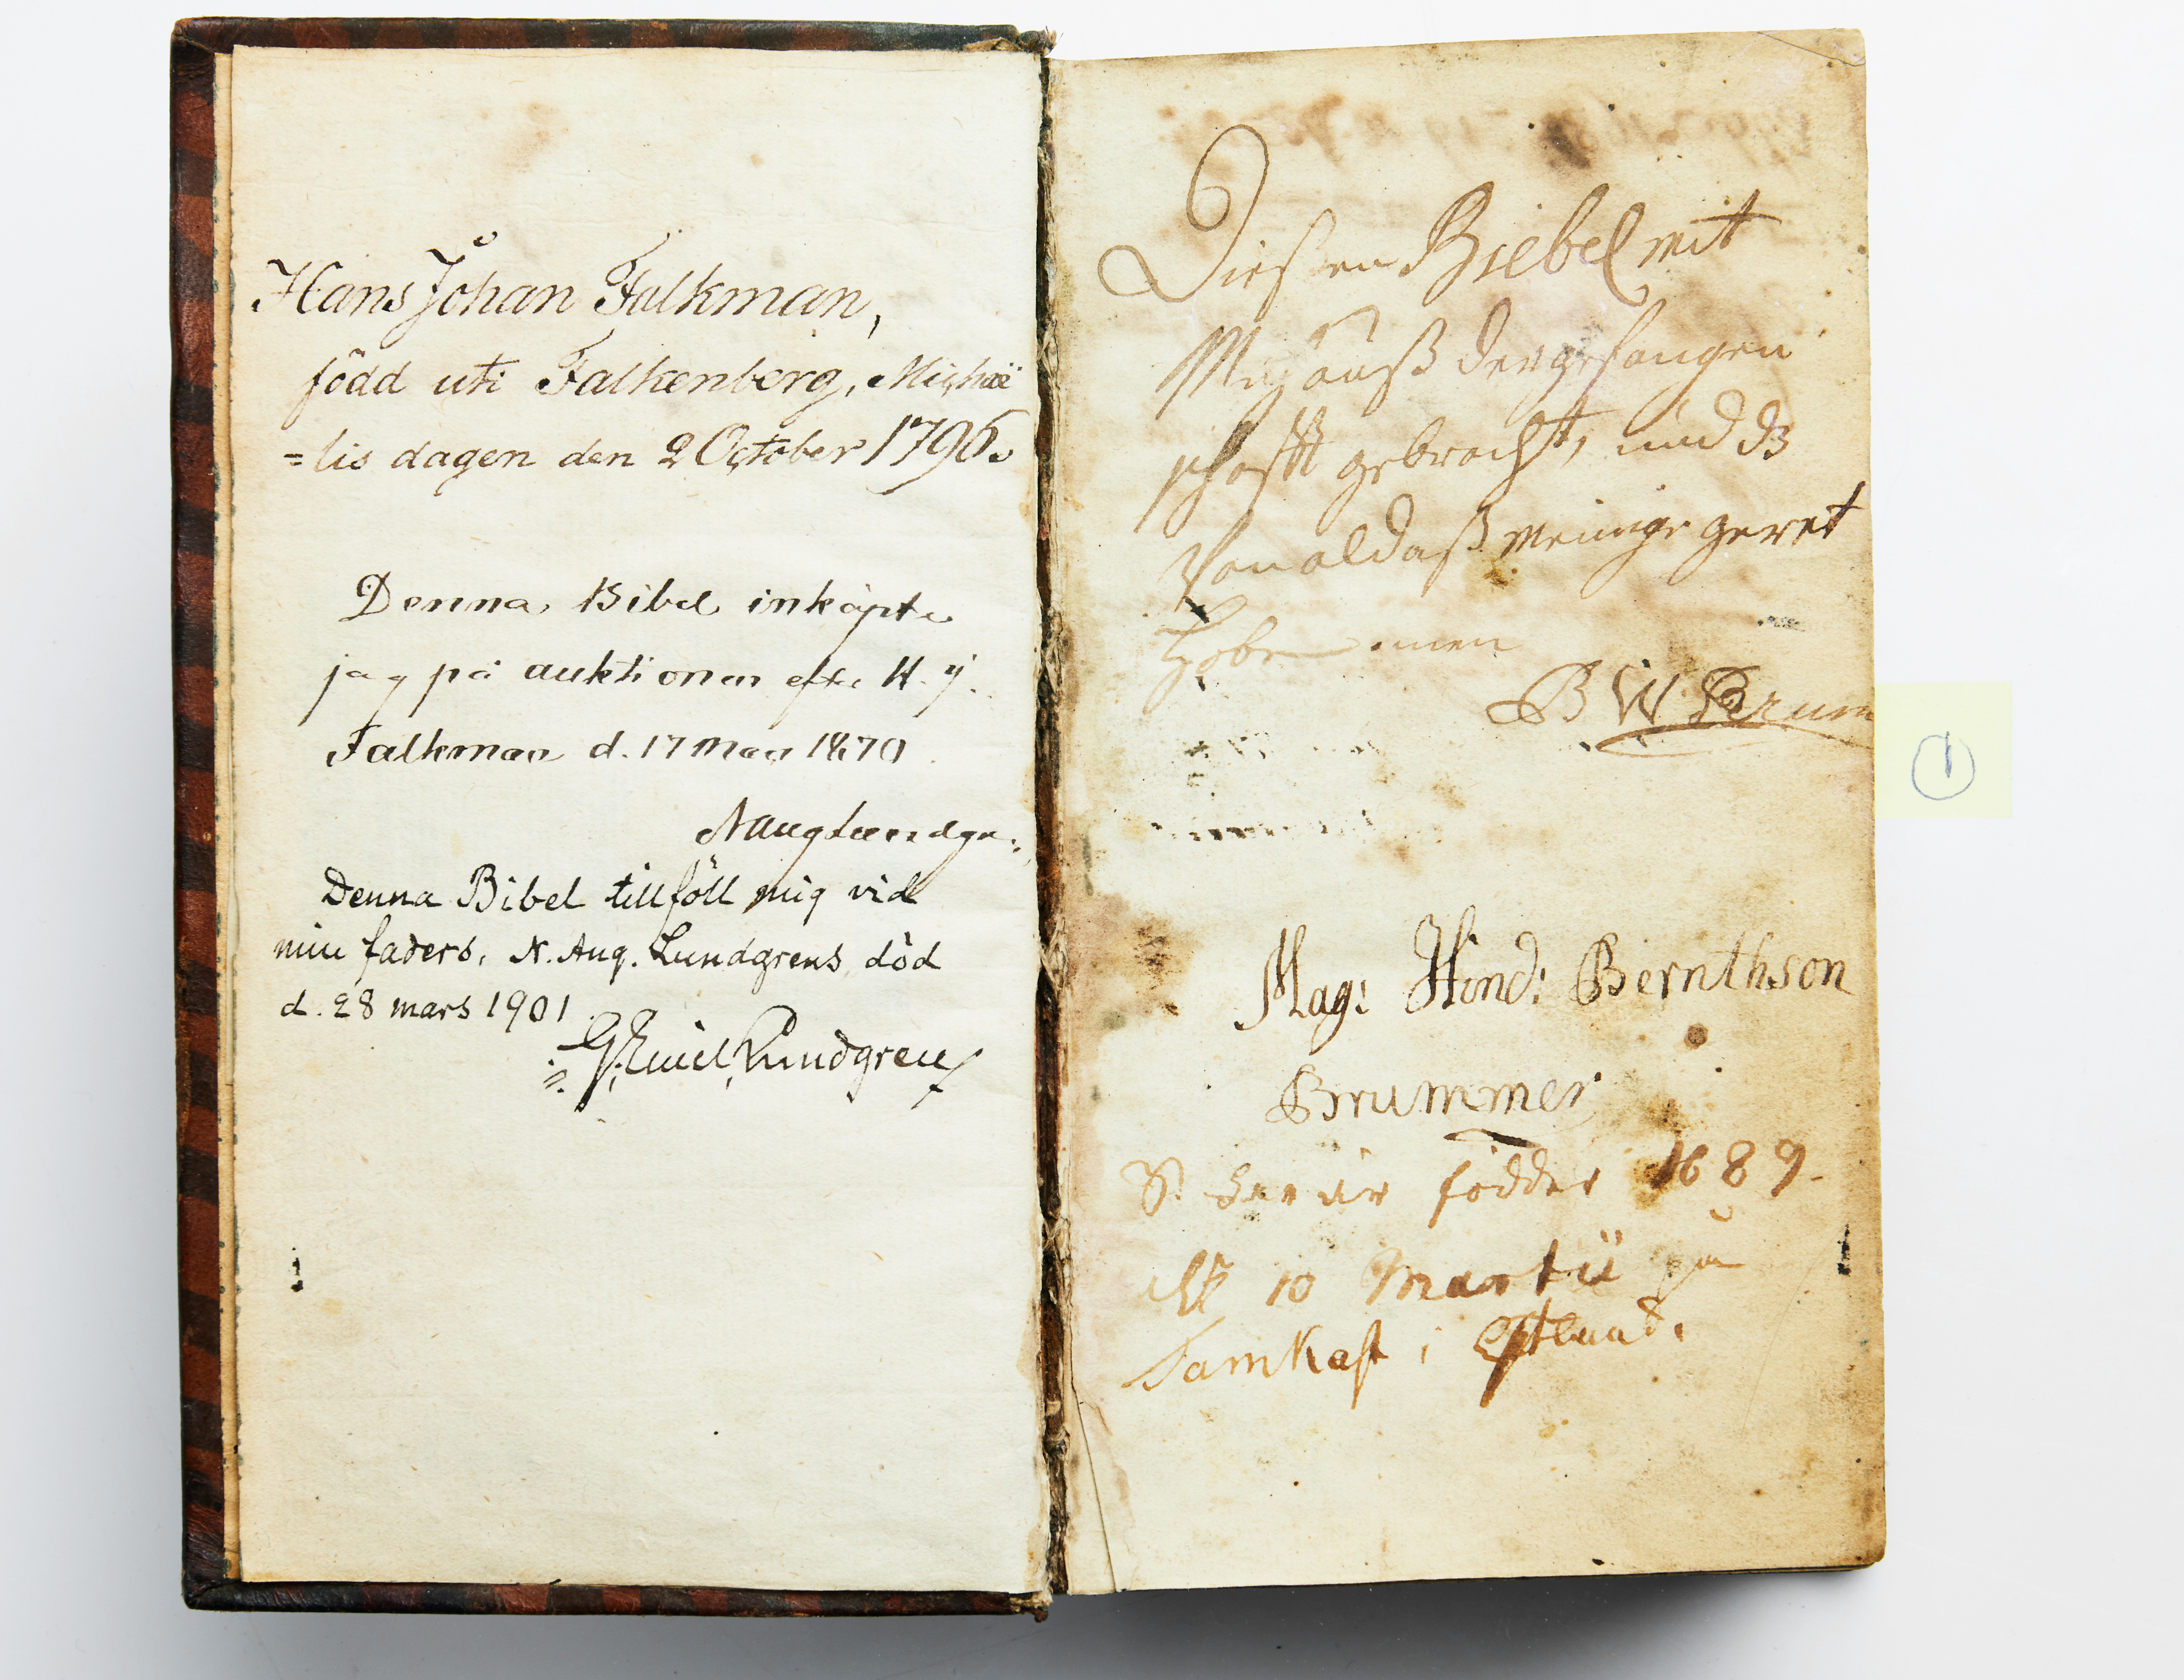 Hans Johan Falkman,
född uti Falkenberg, Michae
=lis dagen den 2 October 1796.
Denna Bibel inköpte
jag på auktionen efter H. J.
Falkman d. 17 Maj 1870
N Aug Lundgren.
Denna Bibel tillföll mig vid
min faders, N. Aug. Lundgrens död
d. 28 mars 1901
G. Emil Lundgren
Dießen Biebel mit
Mir auß der gefangen
schafft gebracht, und
von all daß meinige geret
habe
B W Brum
Mag: Hind: Bernthson
Brummer
är födder 1689.
10 Martii
Tamkast i Estland.
1